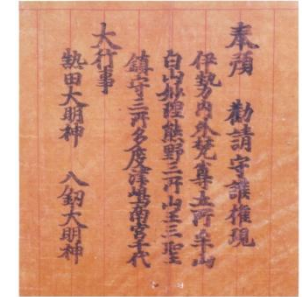 奉顔 勧請守護権現
伊勢内外梵尊五所牟山
白山妙理熊野三所山王三聖
鎮守三所多度津嶋南宮千代
大行事
熱田大明神 八釼大明神